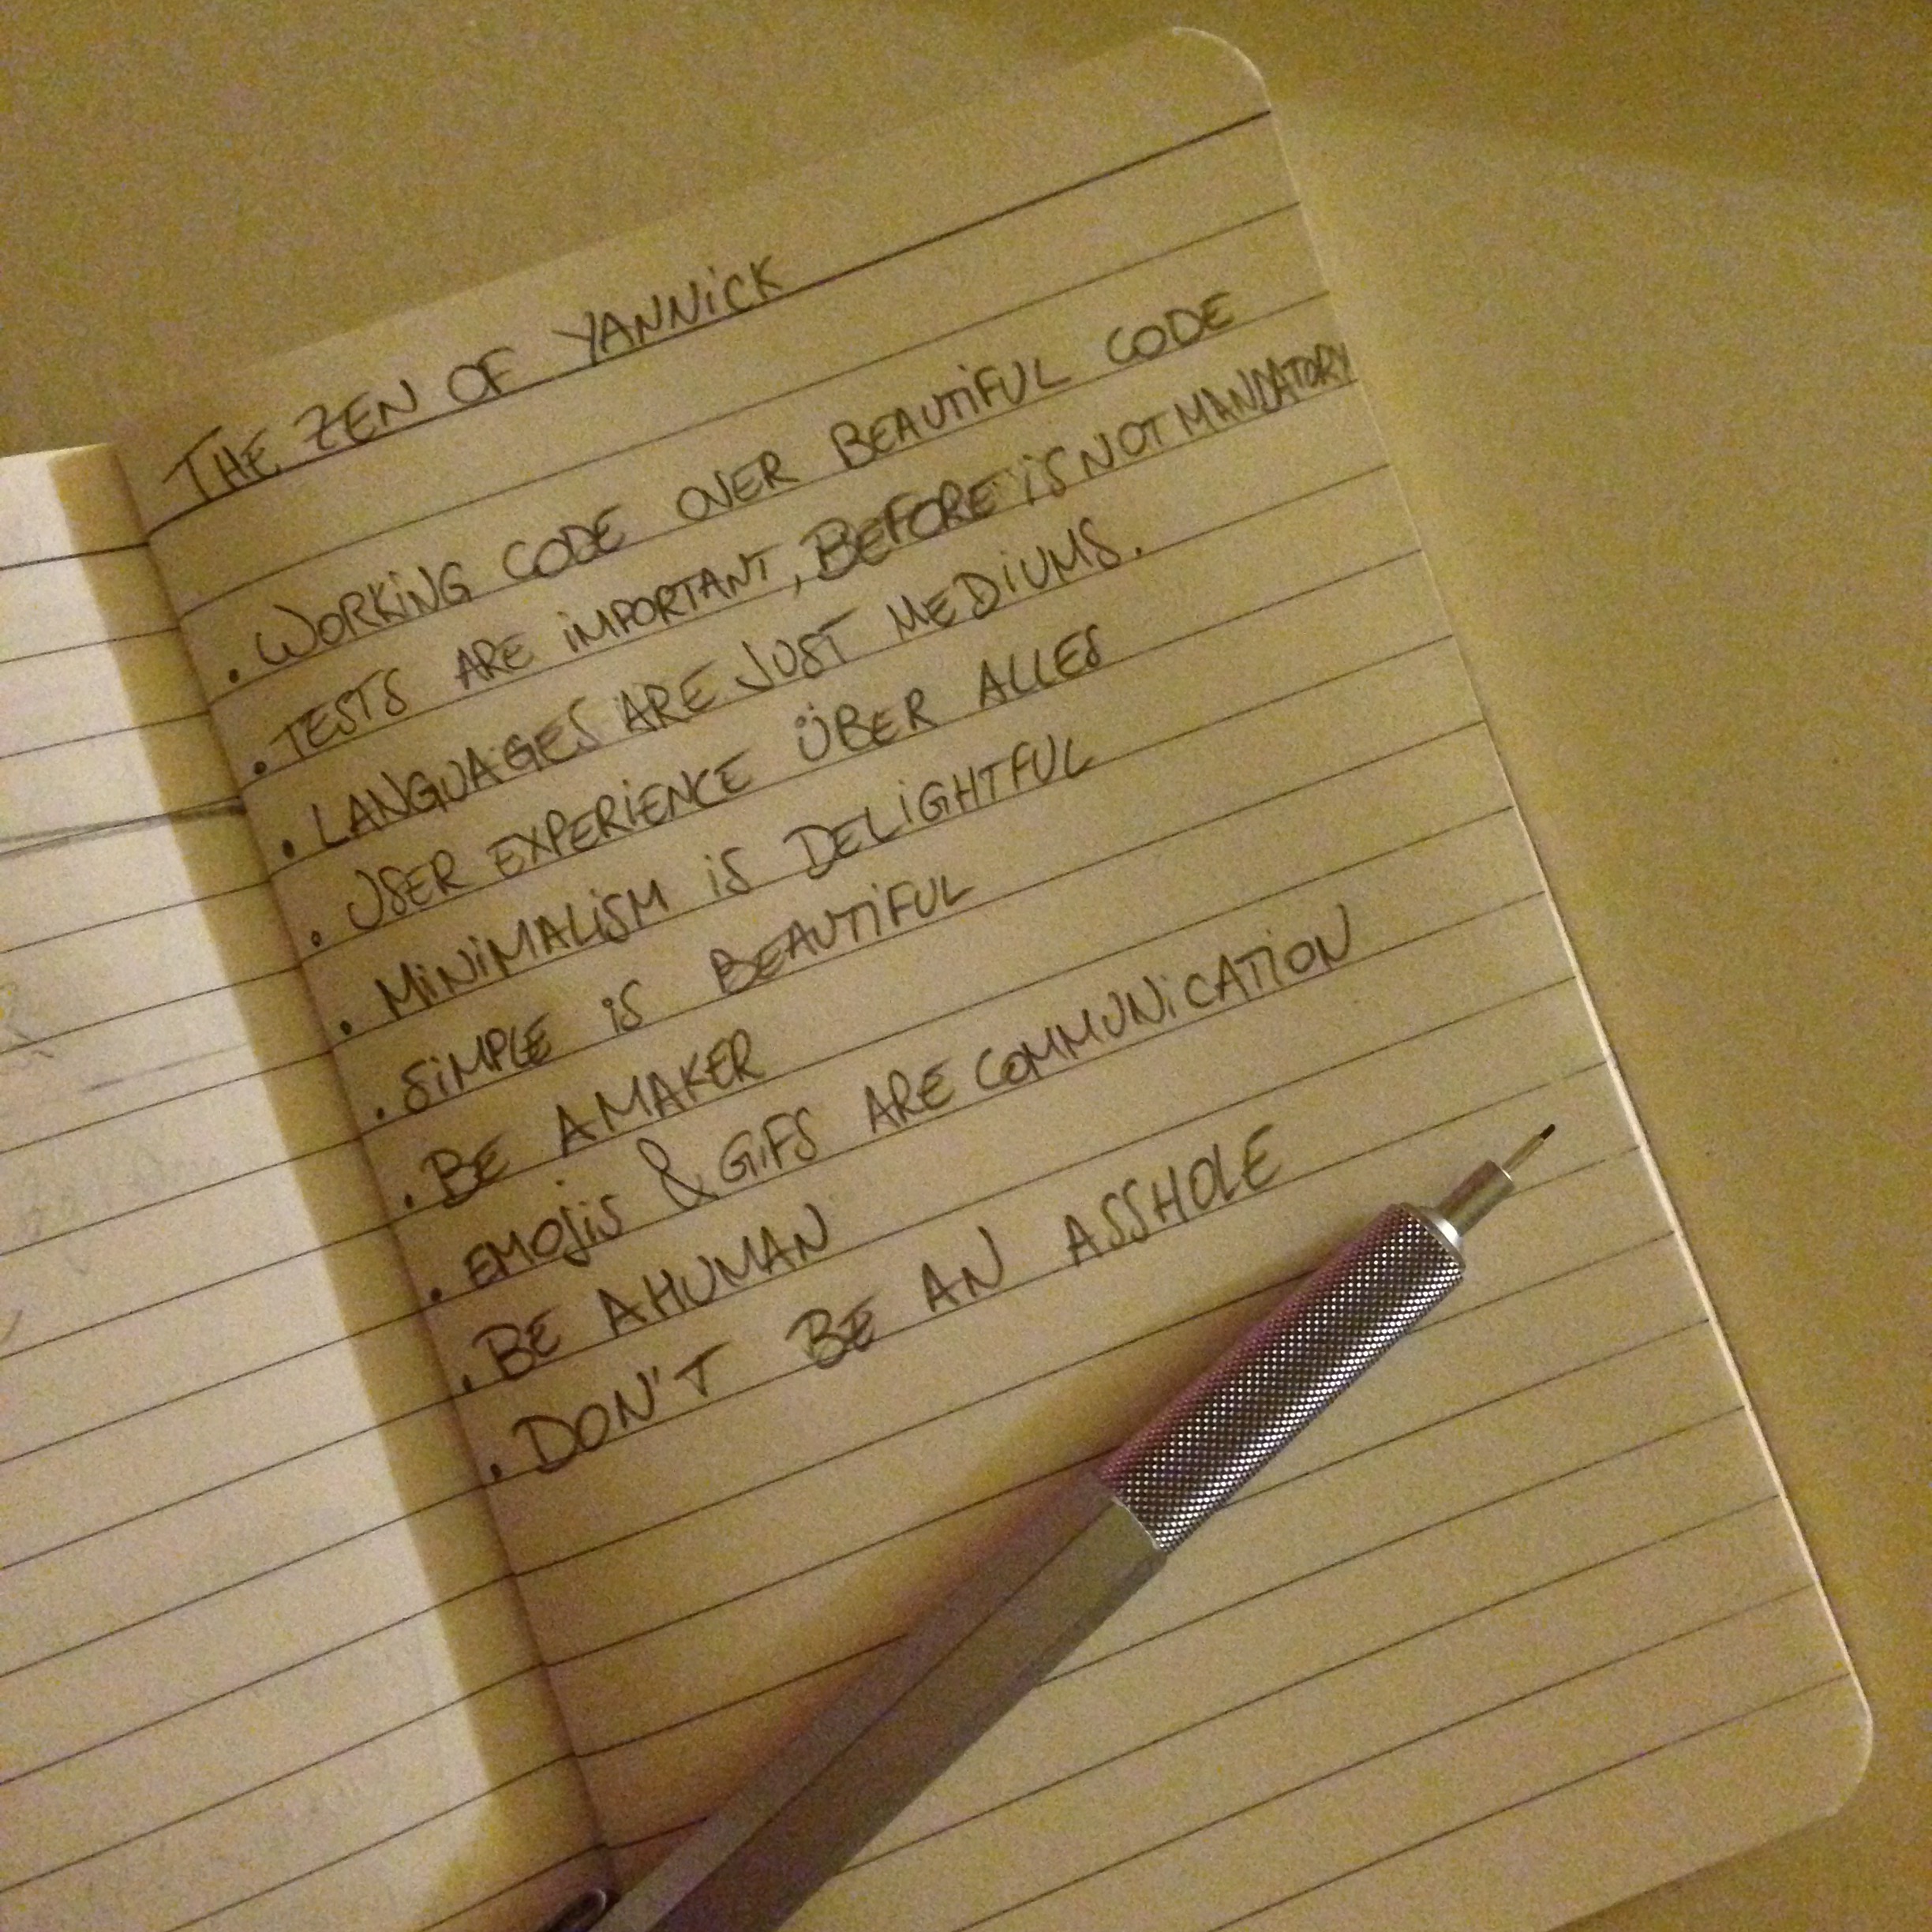 THE ZEN OF YANNiCK
. WORKiNG CODE OVER BEAUTiFUL CODE
. TESTS ARE iMPORTANT, BEFORE iS NOT MANDATORY
. LANGUAGES ARE JUST MEDiUMS.
. USER EXPERiENCE ÜBER ALLES
. MiNiMALiSM iS DELiGHTFUL
. SiMPLE iS BEAUTiFUL
. BE A MAKER
. EMOjiS & GiFS ARE COMMUNiCATiON
. BE A HUMAN
. DON'T BE AN ASSHOLE